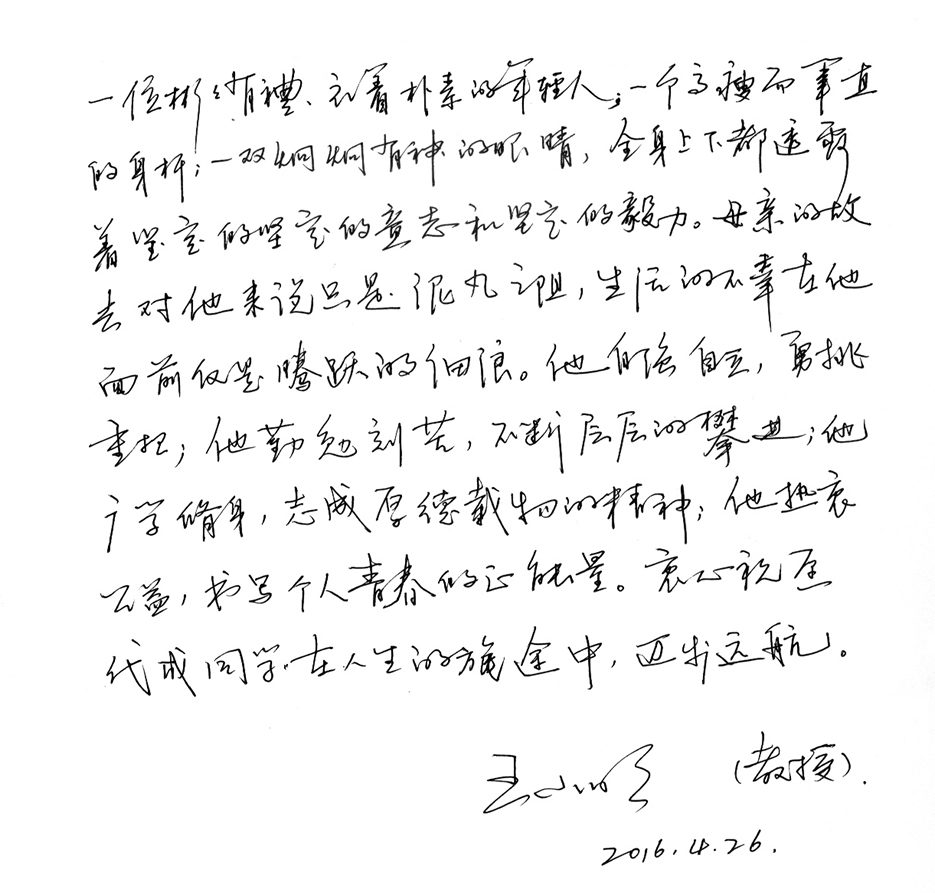 一位彬彬有禮、衣着朴素的年轻人；一个高瘦而笔直
的身杆；一双炯炯有神的眼睛，全身上下都透露
着坚定的坚定的意志和坚定的毅力。母亲的故
去对他来说只是泥丸之阻，生活的不幸在他
面前仅是腾跃的细浪。他自强自立，勇挑
重担；他勤勉刻苦，不断层层的攀登；他
广学脩身，志成厚德载物的精神；他热衷
公益，书写个人青春的正能量。衷心祝愿
代成同学在人生的旅途中，迈步远航。
（教授）.
2016.4.26.